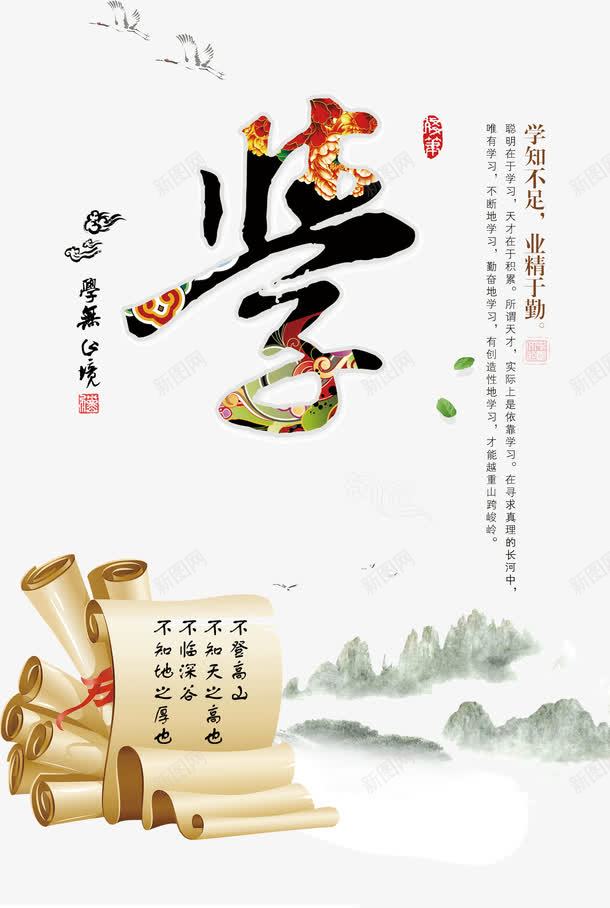 学
学知不足，业精于勤。
聪明在于学习，天才在于积累。所谓天才，实际上是依靠学习。在寻求真理的长河中，
唯有学习，不断地学习，勤奋地学习，有创造性地学习，才能越重山跨峻岭。
學無止境
不登高山
不知天之高也
不临深谷
不知地之厚也